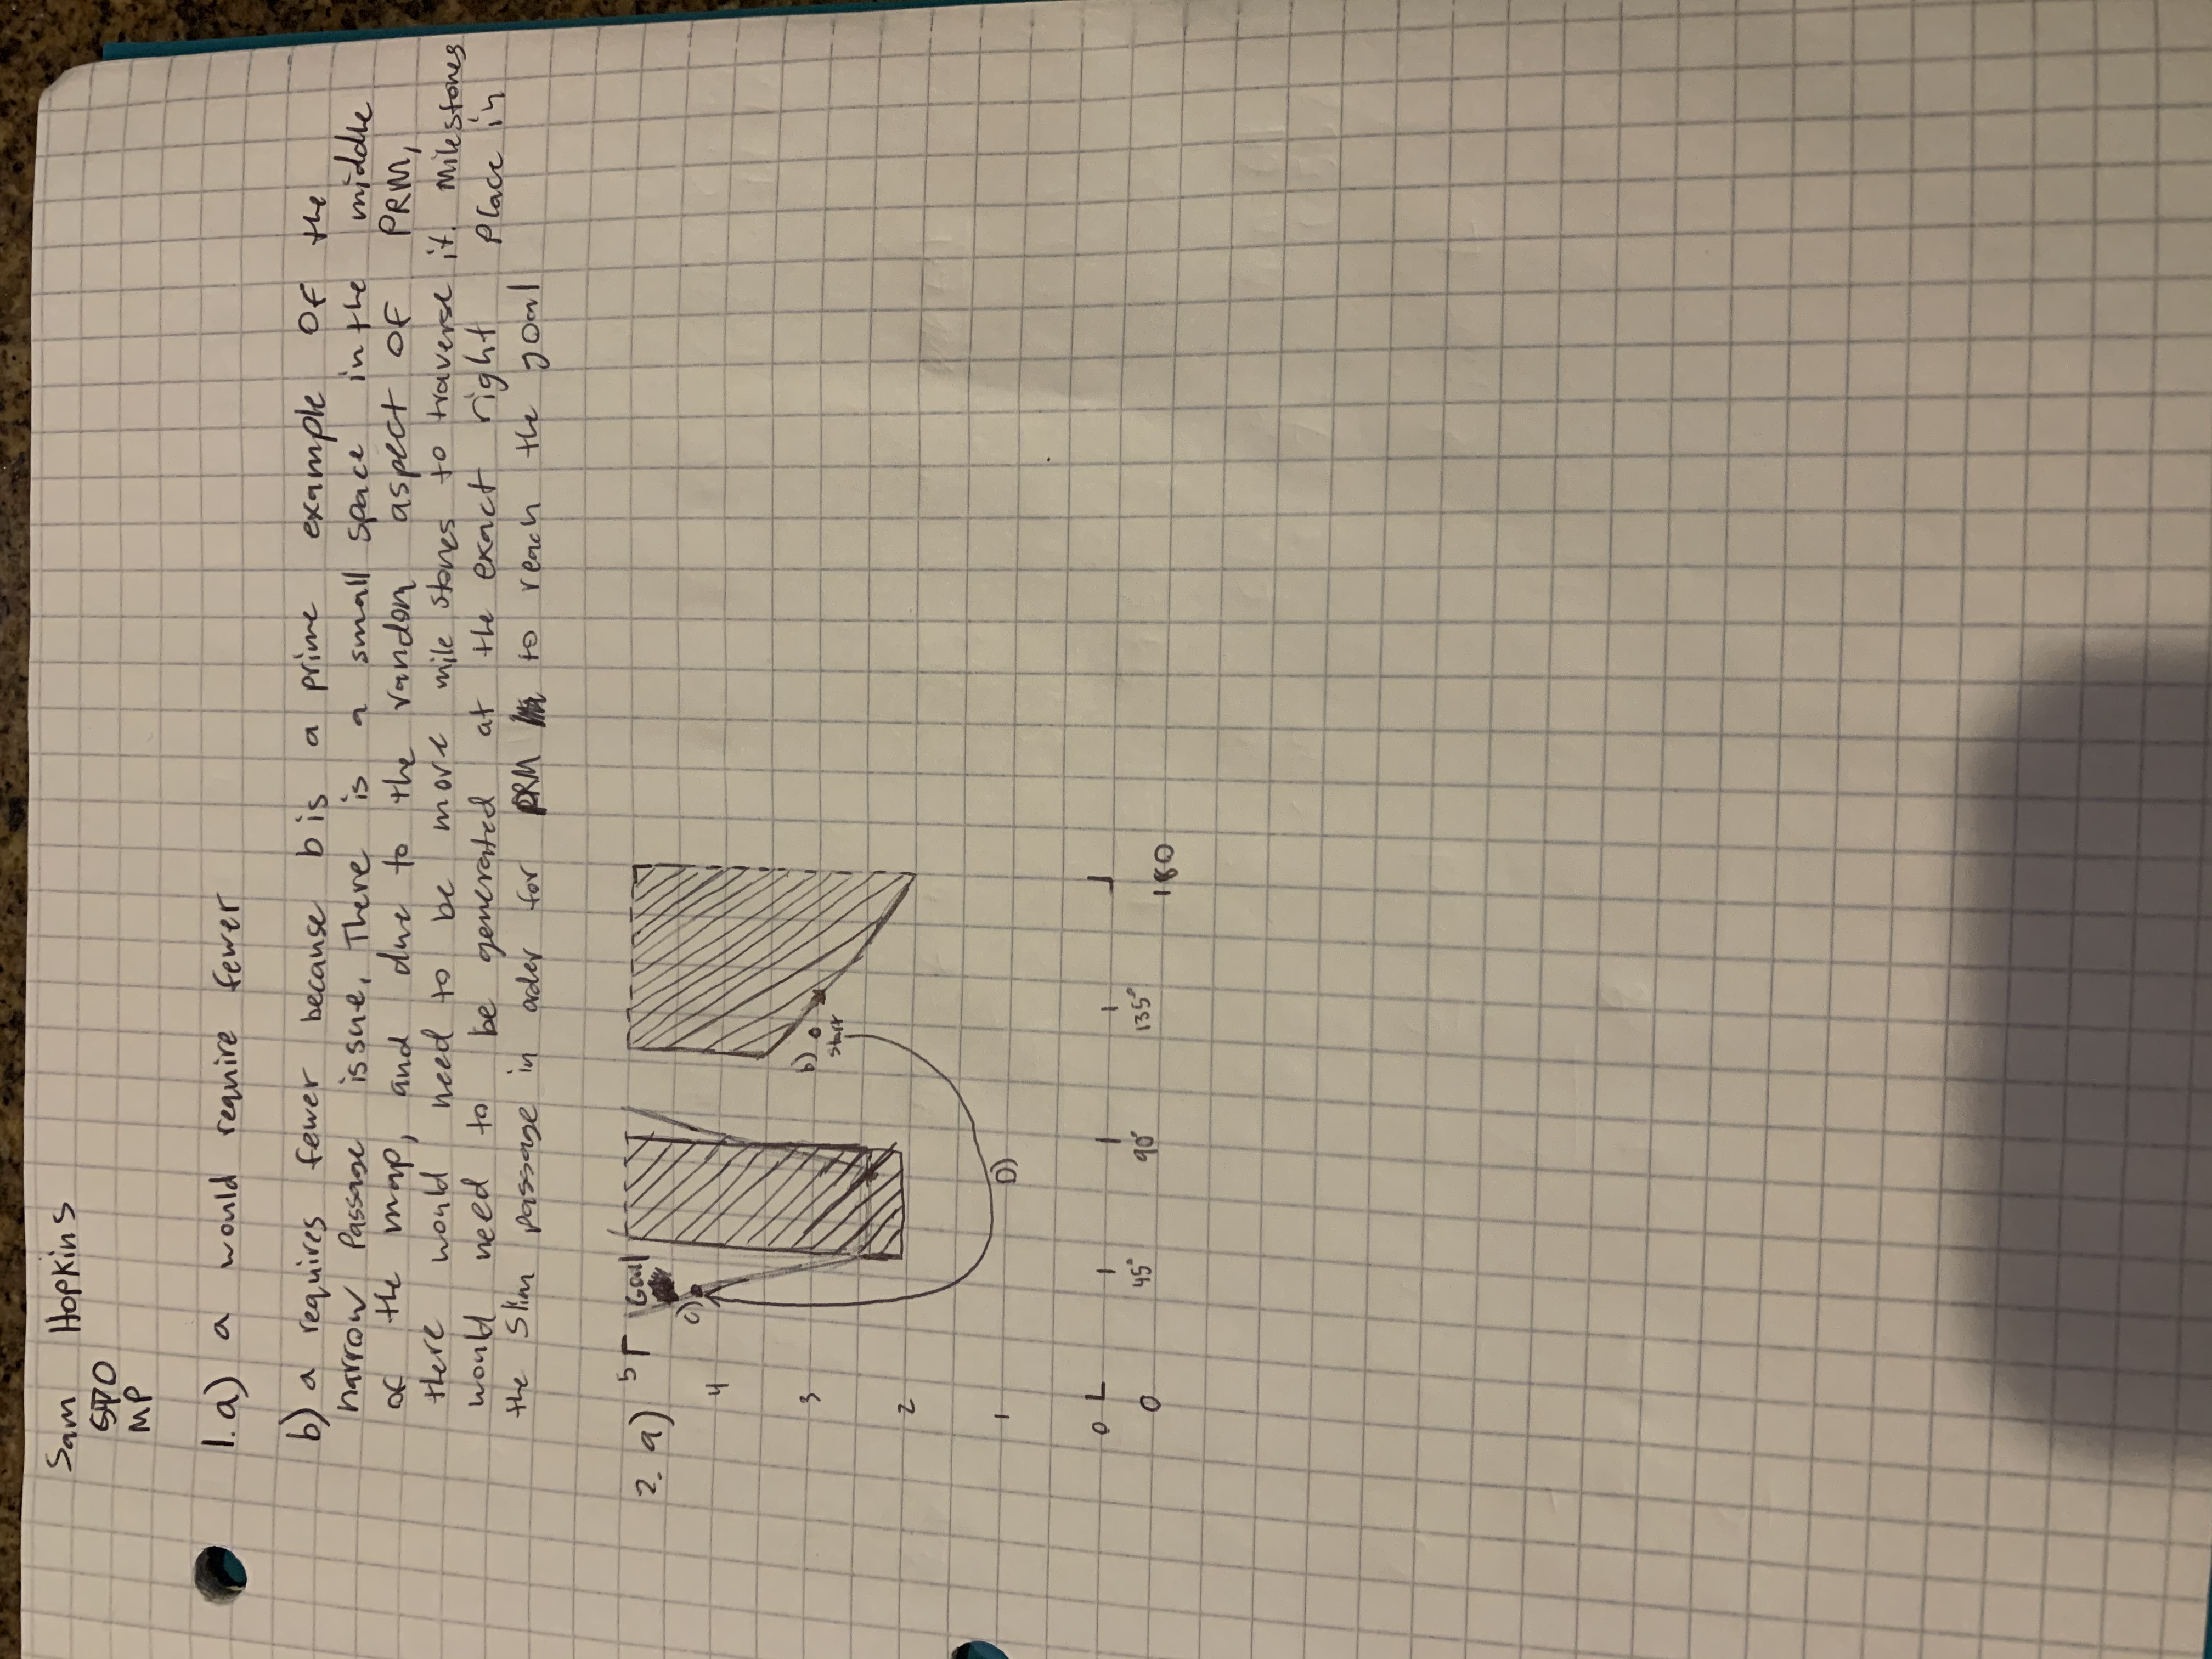 Sam Hopkins
570
MP
1. a) a would require fewer
b) a requires fewer because b is a prime example of the
narrow passage issue. There is a small space in the middle
of the map, and due to the random aspect of PRM,
there would need to be more mile stones to traverse it. Milestones
would need to be generated at the exact right place in
the slim passage in order for PRM to reach the goal
2. a) 5 Goal
c)
4
3 b)
start
2
1 D)
0
0 45° 90° 135° 180